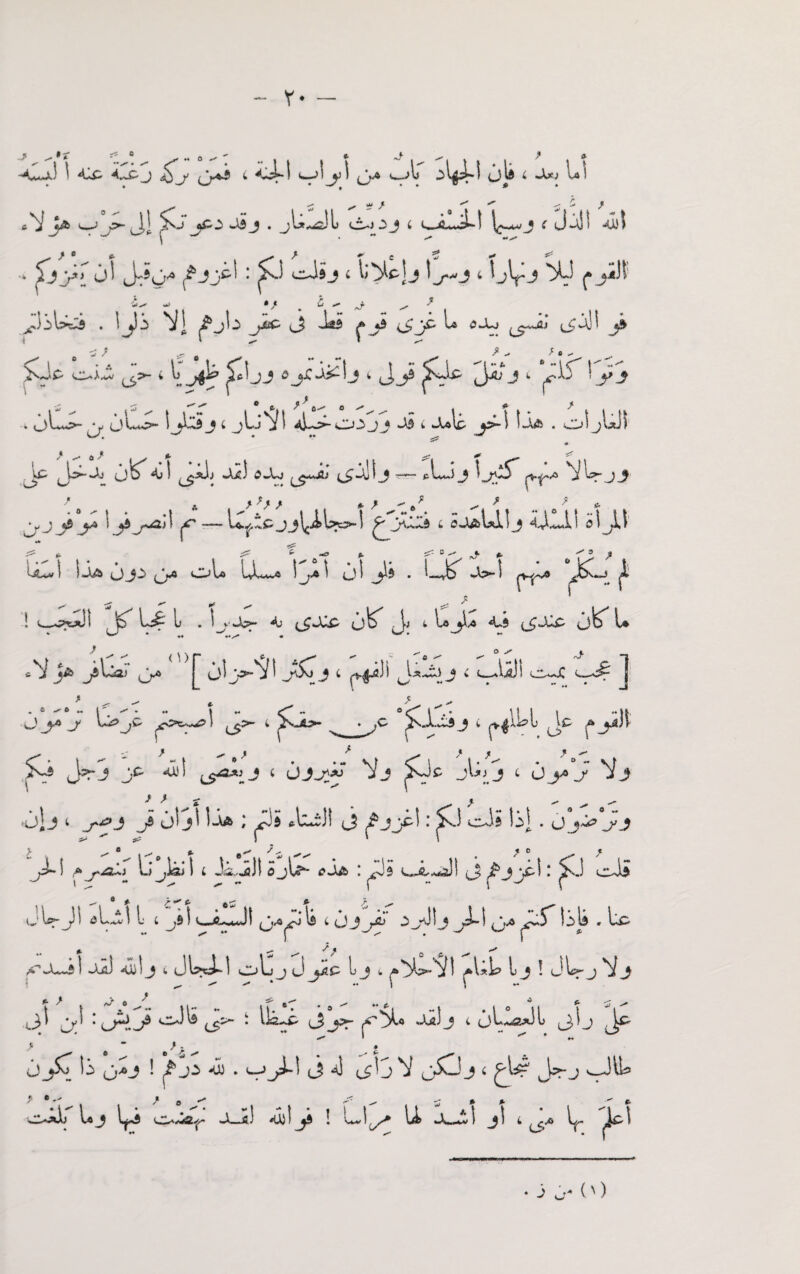 — ٢٠ —
أما بعد ، فإن الجهاد باب من أبواب الجنة ، فمن تركه رغبة عنه ألبسه
الله الذل ، وسيم الخسف ، وديث بالصغار . وقد دعوتكم إلى حرب هؤلاء
القوم ليلا ونهارا ، وسرا وإعلانا ، وقلت لكم : اغزوهم من قبل أن يغزوكم .
فو الذي نفسي بيده ما غزي قوم قط في عقر دارهم إلا ذلوا . فتخاذلتم
وتواكلتم ، وثقل عليكم قولي ، واتخذتموه وراءكم ظهريا ، حتى شنت عليكم
الغارات . هذا أخو غامد ، قد وردت خيله الأنبار ، وقتلوا حسان بن حسان ،
ورجالا منهم كثيرا ونساء — والذي نفسي بيده لقد بلغني أنه كان يدخل على
المرأة المسلمة والمعاهدة ، فتنتزع أحجالهما ورعثهما — ثم انصرفوا موفورين
لم يكلم منهم أحد كلما . فلو أن امرأ مسلما مات من دون هذا أسفا
ما كان عندي فيه ملوما ، بل كان عندي به جديرا . يا عجبا كل العجب !
[ عجب يميت القلب ، ويشغل الفهم ، ويكثر الأحزان ](١) من تضافر هؤلاء
القوم على باطلهم ، وفشلكم عن حقكم ، حتى أصبحتم غرضا ترمون
ولا ترمون ، ويغار عليكم ولا تغيرون ، ويعصى الله عز وجل فيكم
وترضون . إذا قلت لكم : اغزوهم في الشتاء قلتم : هذا أوان قر وصر ، وإن
قلت لكم : اغزوهم في الصيف قلتم : هذه حمارة القيظ ، أنظرنا ينصرم الحر
عنا . فإذا كنتم من الحر والبرد تفرون ، فأنتم من السيف أفر ، يا أشباه الرجال
ولا رجال ! ويا طغام الأحلام ، ويا عقول ربات الحجال ، والله لقد أفسدتم
علي رأيي بالعصيان ، ولقد ملأتم جوفي غيظا ؛ حتى قالت قريش : ابن أبي
طالب رجل شجاع ، ولكن لا رأي له في الحرب . لله درهم ! ومن ذا يكون
أعلم بها مني ، أو أشد لها مراسا ! فو الله لقد نهضت فيها وما بلغت
(١) من ز .